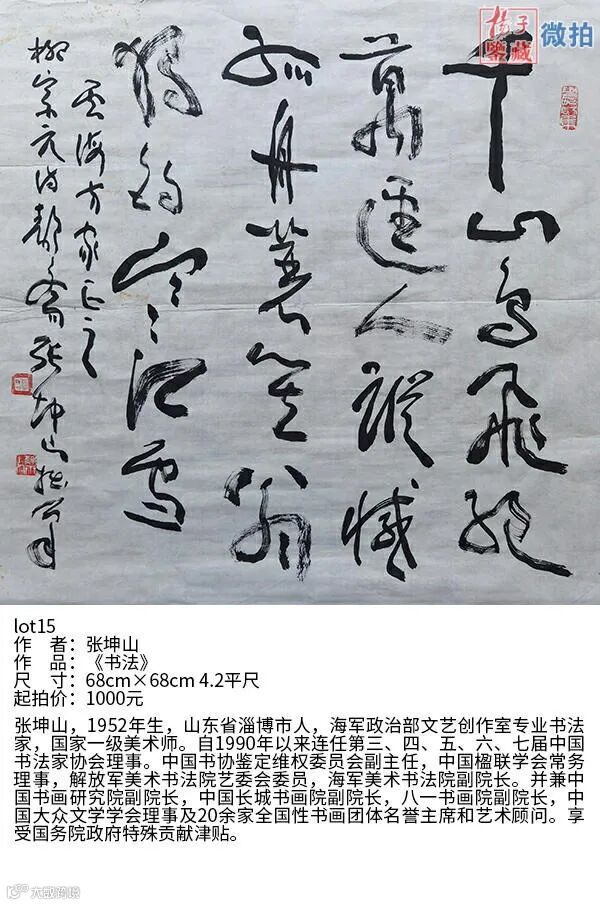 揚子
鑒藏
微拍
千山鳥飛絕
萬逕人蹤滅
孤舟蓑笠翁
獨釣寒江雪
雲海方家正之
柳宗元詩 張坤山
lot15
作 者：张坤山
作 品：《书法》
尺 寸：68cm×68cm 4.2平尺
起拍价：1000元
张坤山，1952年生，山东省淄博市人，海军政治部文艺创作室专业书法
家，国家一级美术师。自1990年以来连任第三、四、五、六、七届中国
书法家协会理事。中国书协鉴定维权委员会副主任，中国楹联学会常务
理事，解放军美术书法院艺委会委员，海军美术书法院副院长。并兼中
国书画研究院副院长，中国长城书画院副院长，八一书画院副院长，中
国大众文学学会理事及20余家全国性书画团体名誉主席和艺术顾问。享
受国务院政府特殊贡献津贴。
大数跨境